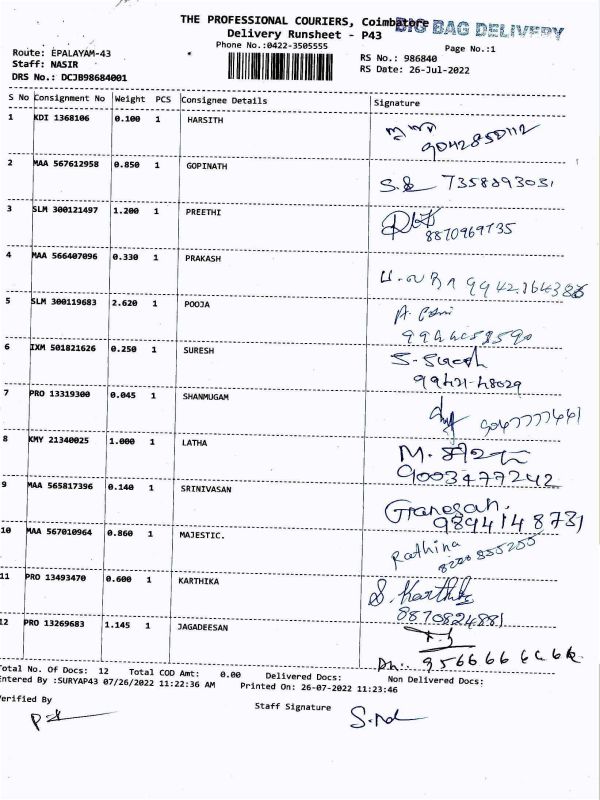 THE PROFESSIONAL COURIERS, Coimbatore
BIG BAG DELIVERY
Delivery Runsheet - P43
Phone No.:0422-3505555
Page No.:1
Route: EPALAYAM-43
RS No.: 986840
Staff: NASIR
RS Date: 26-Jul-2022
DRS No.: DCJB98684001
S No Consignment No Weight PCS Consignee Details Signature
1 KDI 1368106 0.100 1 HARSITH
9042850112
2 MAA 567612958 0.850 1 GOPINATH
7358893031
3 SLM 300121497 1.200 1 PREETHI
8870969735
4 MAA 566407096 0.330 1 PRAKASH
5 SLM 300119683 2.620 1 POOJA
6 IXM 501821626 0.250 1 SURESH
S. Suresh
99421-48029
7 PRO 13319300 0.045 1 SHANMUGAM
8 KMY 21340025 1.000 1 LATHA
9003477242
9 MAA 565817396 0.140 1 SRINIVASAN
Ganesan.
9894148731
10 MAA 567010964 0.860 1 MAJESTIC.
Rathina
8220855255
11 PRO 13493470 0.600 1 KARTHIKA
S. Karthika
8870824881
12 PRO 13269683 1.145 1 JAGADEESAN
Total No. Of Docs: 12 Total COD Amt: 0.00 Delivered Docs: Non Delivered Docs:
Entered By :SURYAP43 07/26/2022 11:22:36 AM Printed On: 26-07-2022 11:23:46
Verified By
Staff Signature